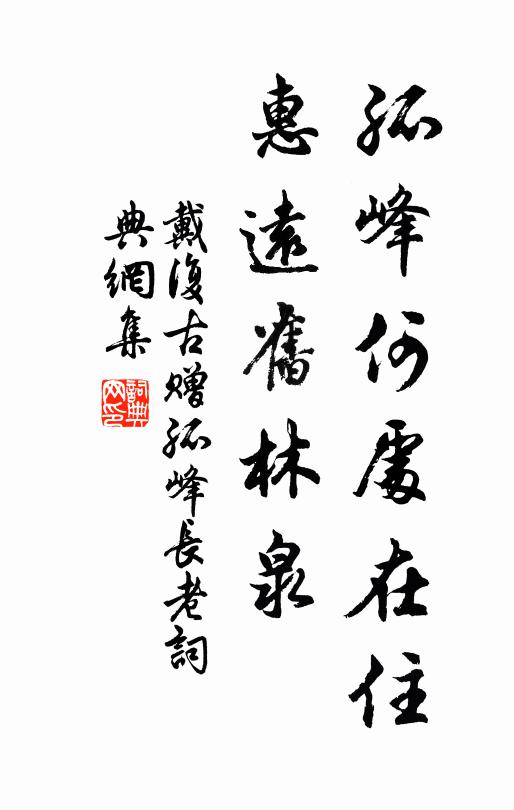 孤峰何處在住
惠遠舊林泉
戴復古赠孤峰長老詞
典網集
詞典网印